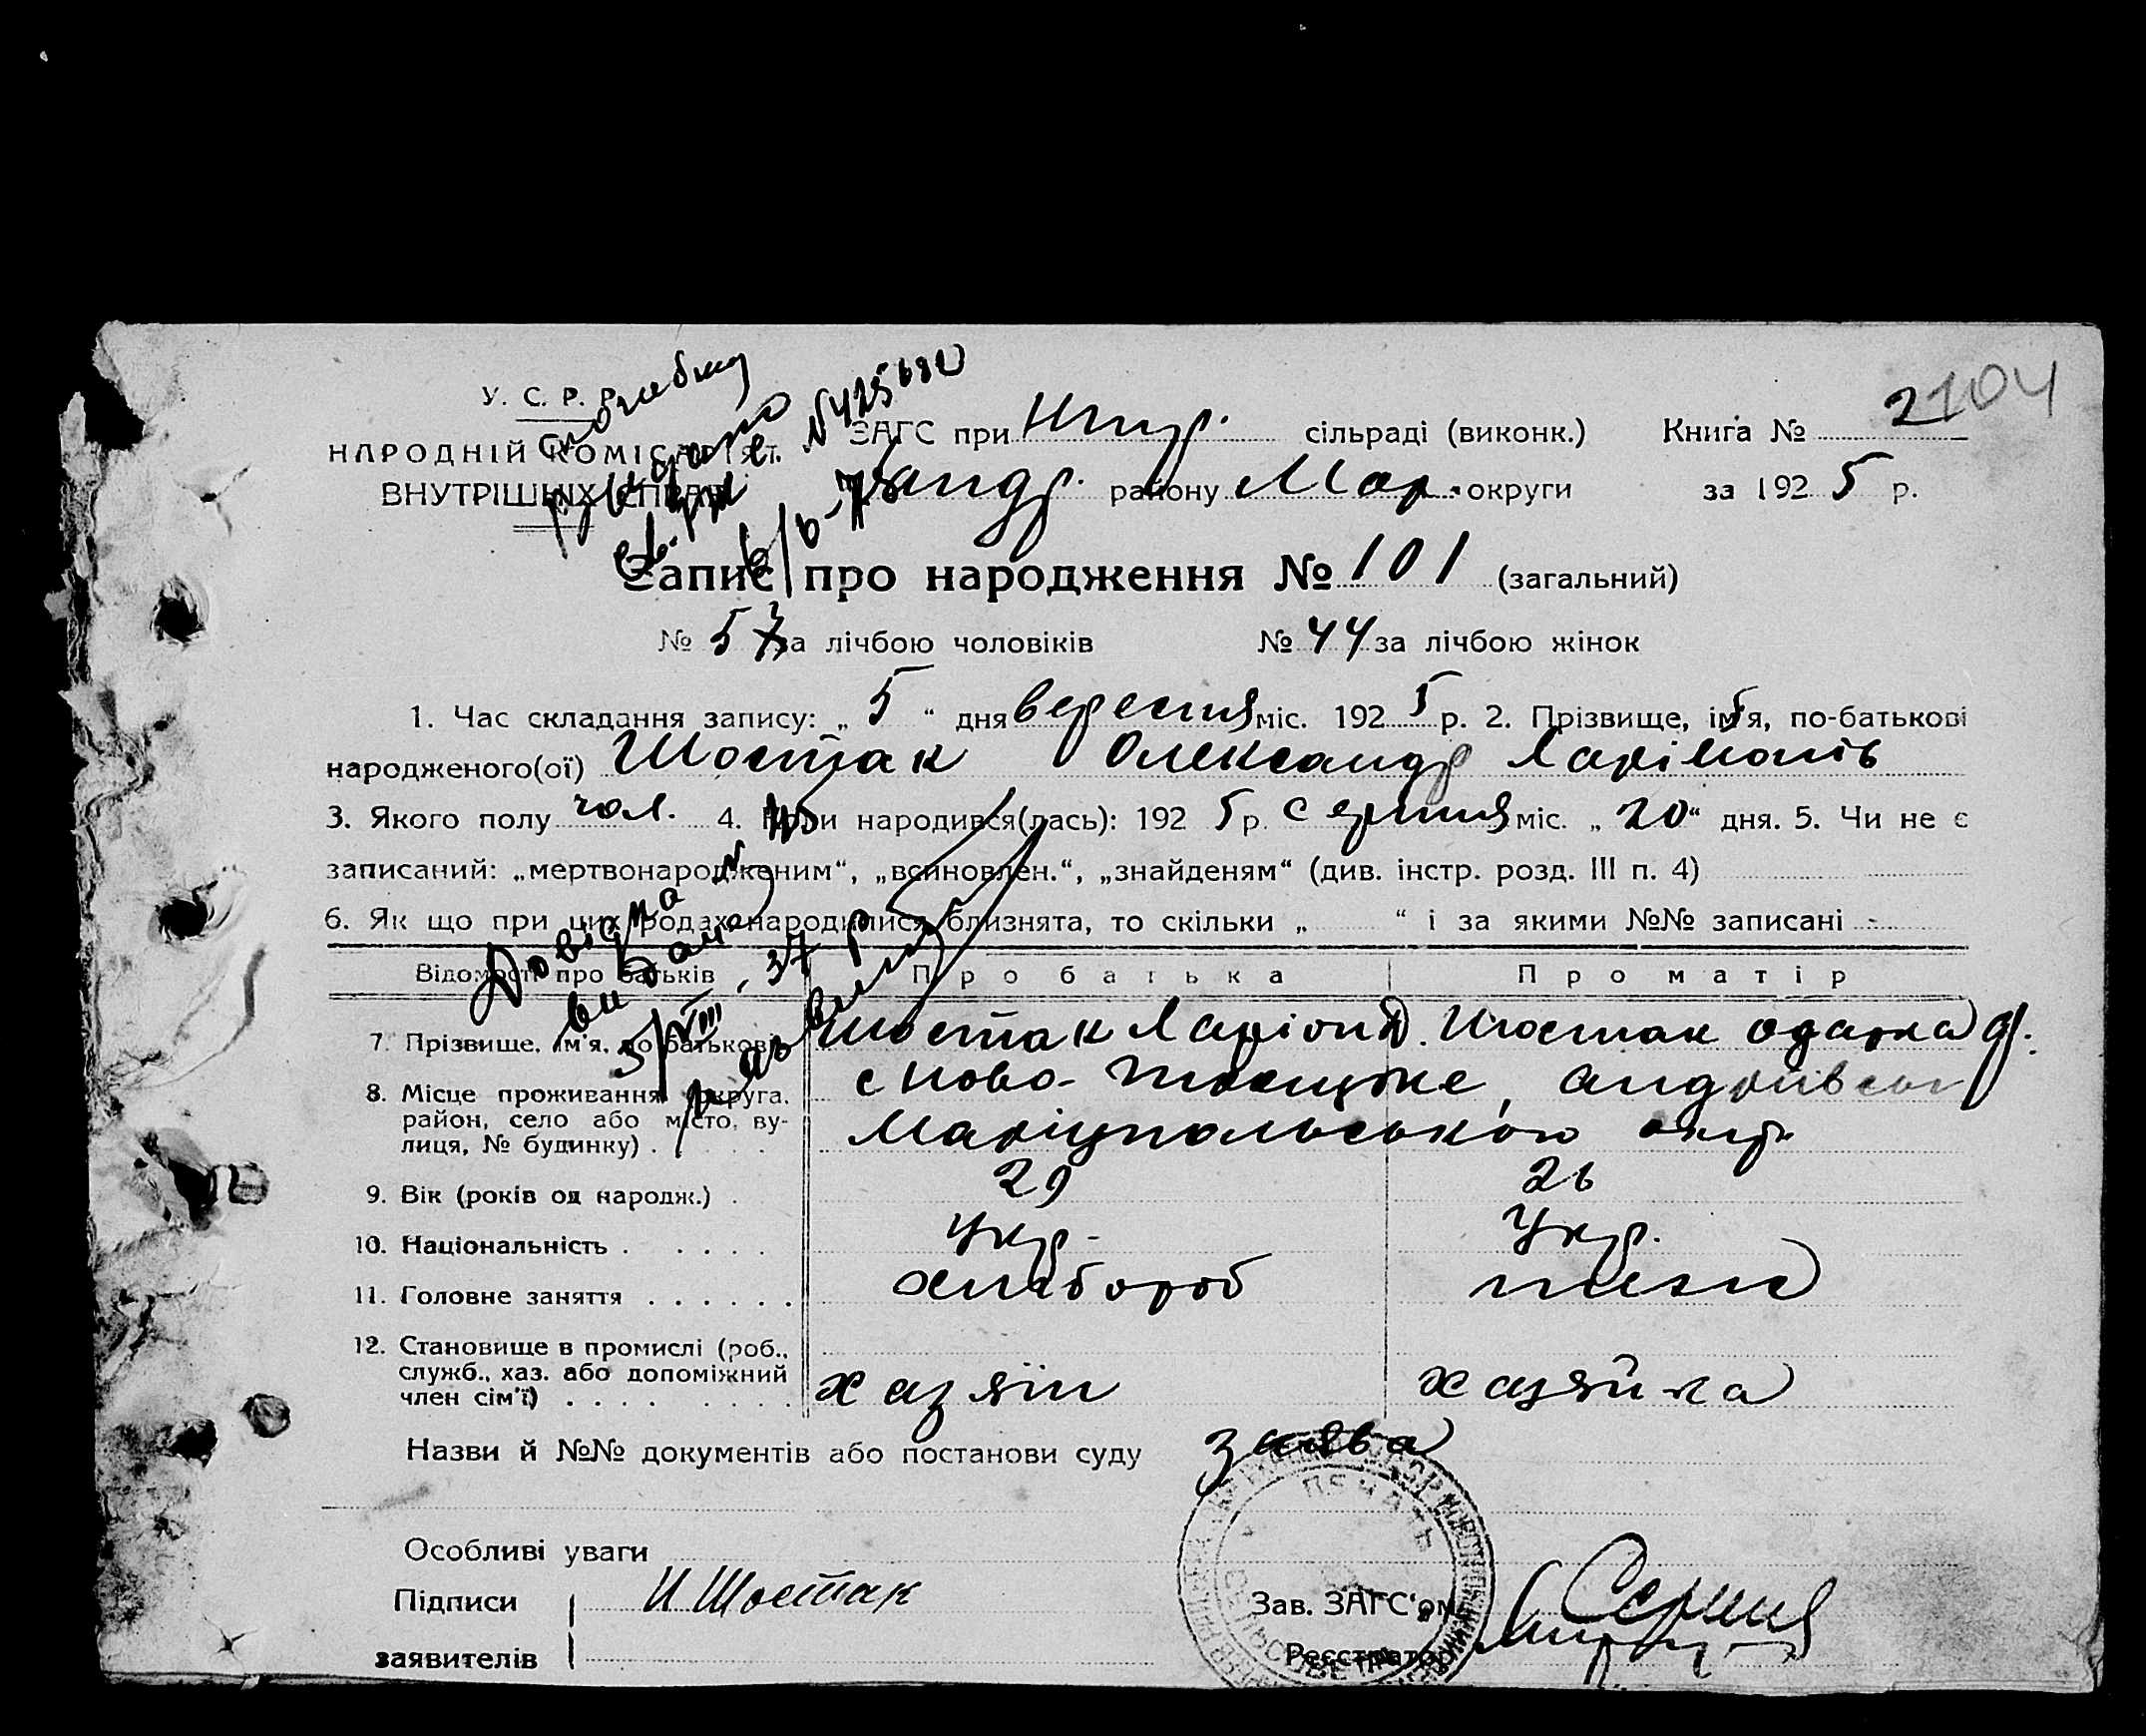 2104
У. С. Р. Р.
НАРОДНІЙ КОМІСАРІЯТ
ВНУТРІШНІХ СПРАВ
ЗАГС при сільраді (виконк.) Книга №
Андр. району Мар. округи за 1925 р.
Запис про народження № 101 (загальний)
№ 57 за лічбою чоловіків № 44 за лічбою жінок
1. Час складання запису: „5“ дня вересня міс. 1925 р. 2. Прізвище, ім'я, по-батькові
народженого(ої) Шостак Олександр Ларімонів
3. Якого полу чол. 4. Коли народився(лась): 1925 р. серпня міс. „20“ дня. 5. Чи не є
записаний: „мертвонародженим“, „всиновлен.“, „знайденям“ (див. інстр. розд. III п. 4)
6. Як що при цих родах народилися близнята, то скільки „ “ і за якими №№ записані -
Довідка
видана
5/VIII, 37 р
Відомості про батьків Про батька Про матір
7. Прізвище, ім'я, по батькові Шостак Ларіон Д. Шостак Одарка
8. Місце проживання (округа, район, село або місто, вулиця, № будинку) . с Ново-
Маріупольською окр.
9. Вік (років од народж.) . 29 26
10. Національність . . . . . Укр. Укр.
11. Головне заняття . . . . . . хлібороб
12. Становище в промислі (роб.,
служб., хаз. або допоміжний
член сім'ї) . . . . . . . . хазяїн хазяйка
Назви й №№ документів або постанови суду заява
ПЕЧАТЬ
Особливі уваги
Підписи И Шостак Зав. ЗАГС'ом
заявителів Реєстратор